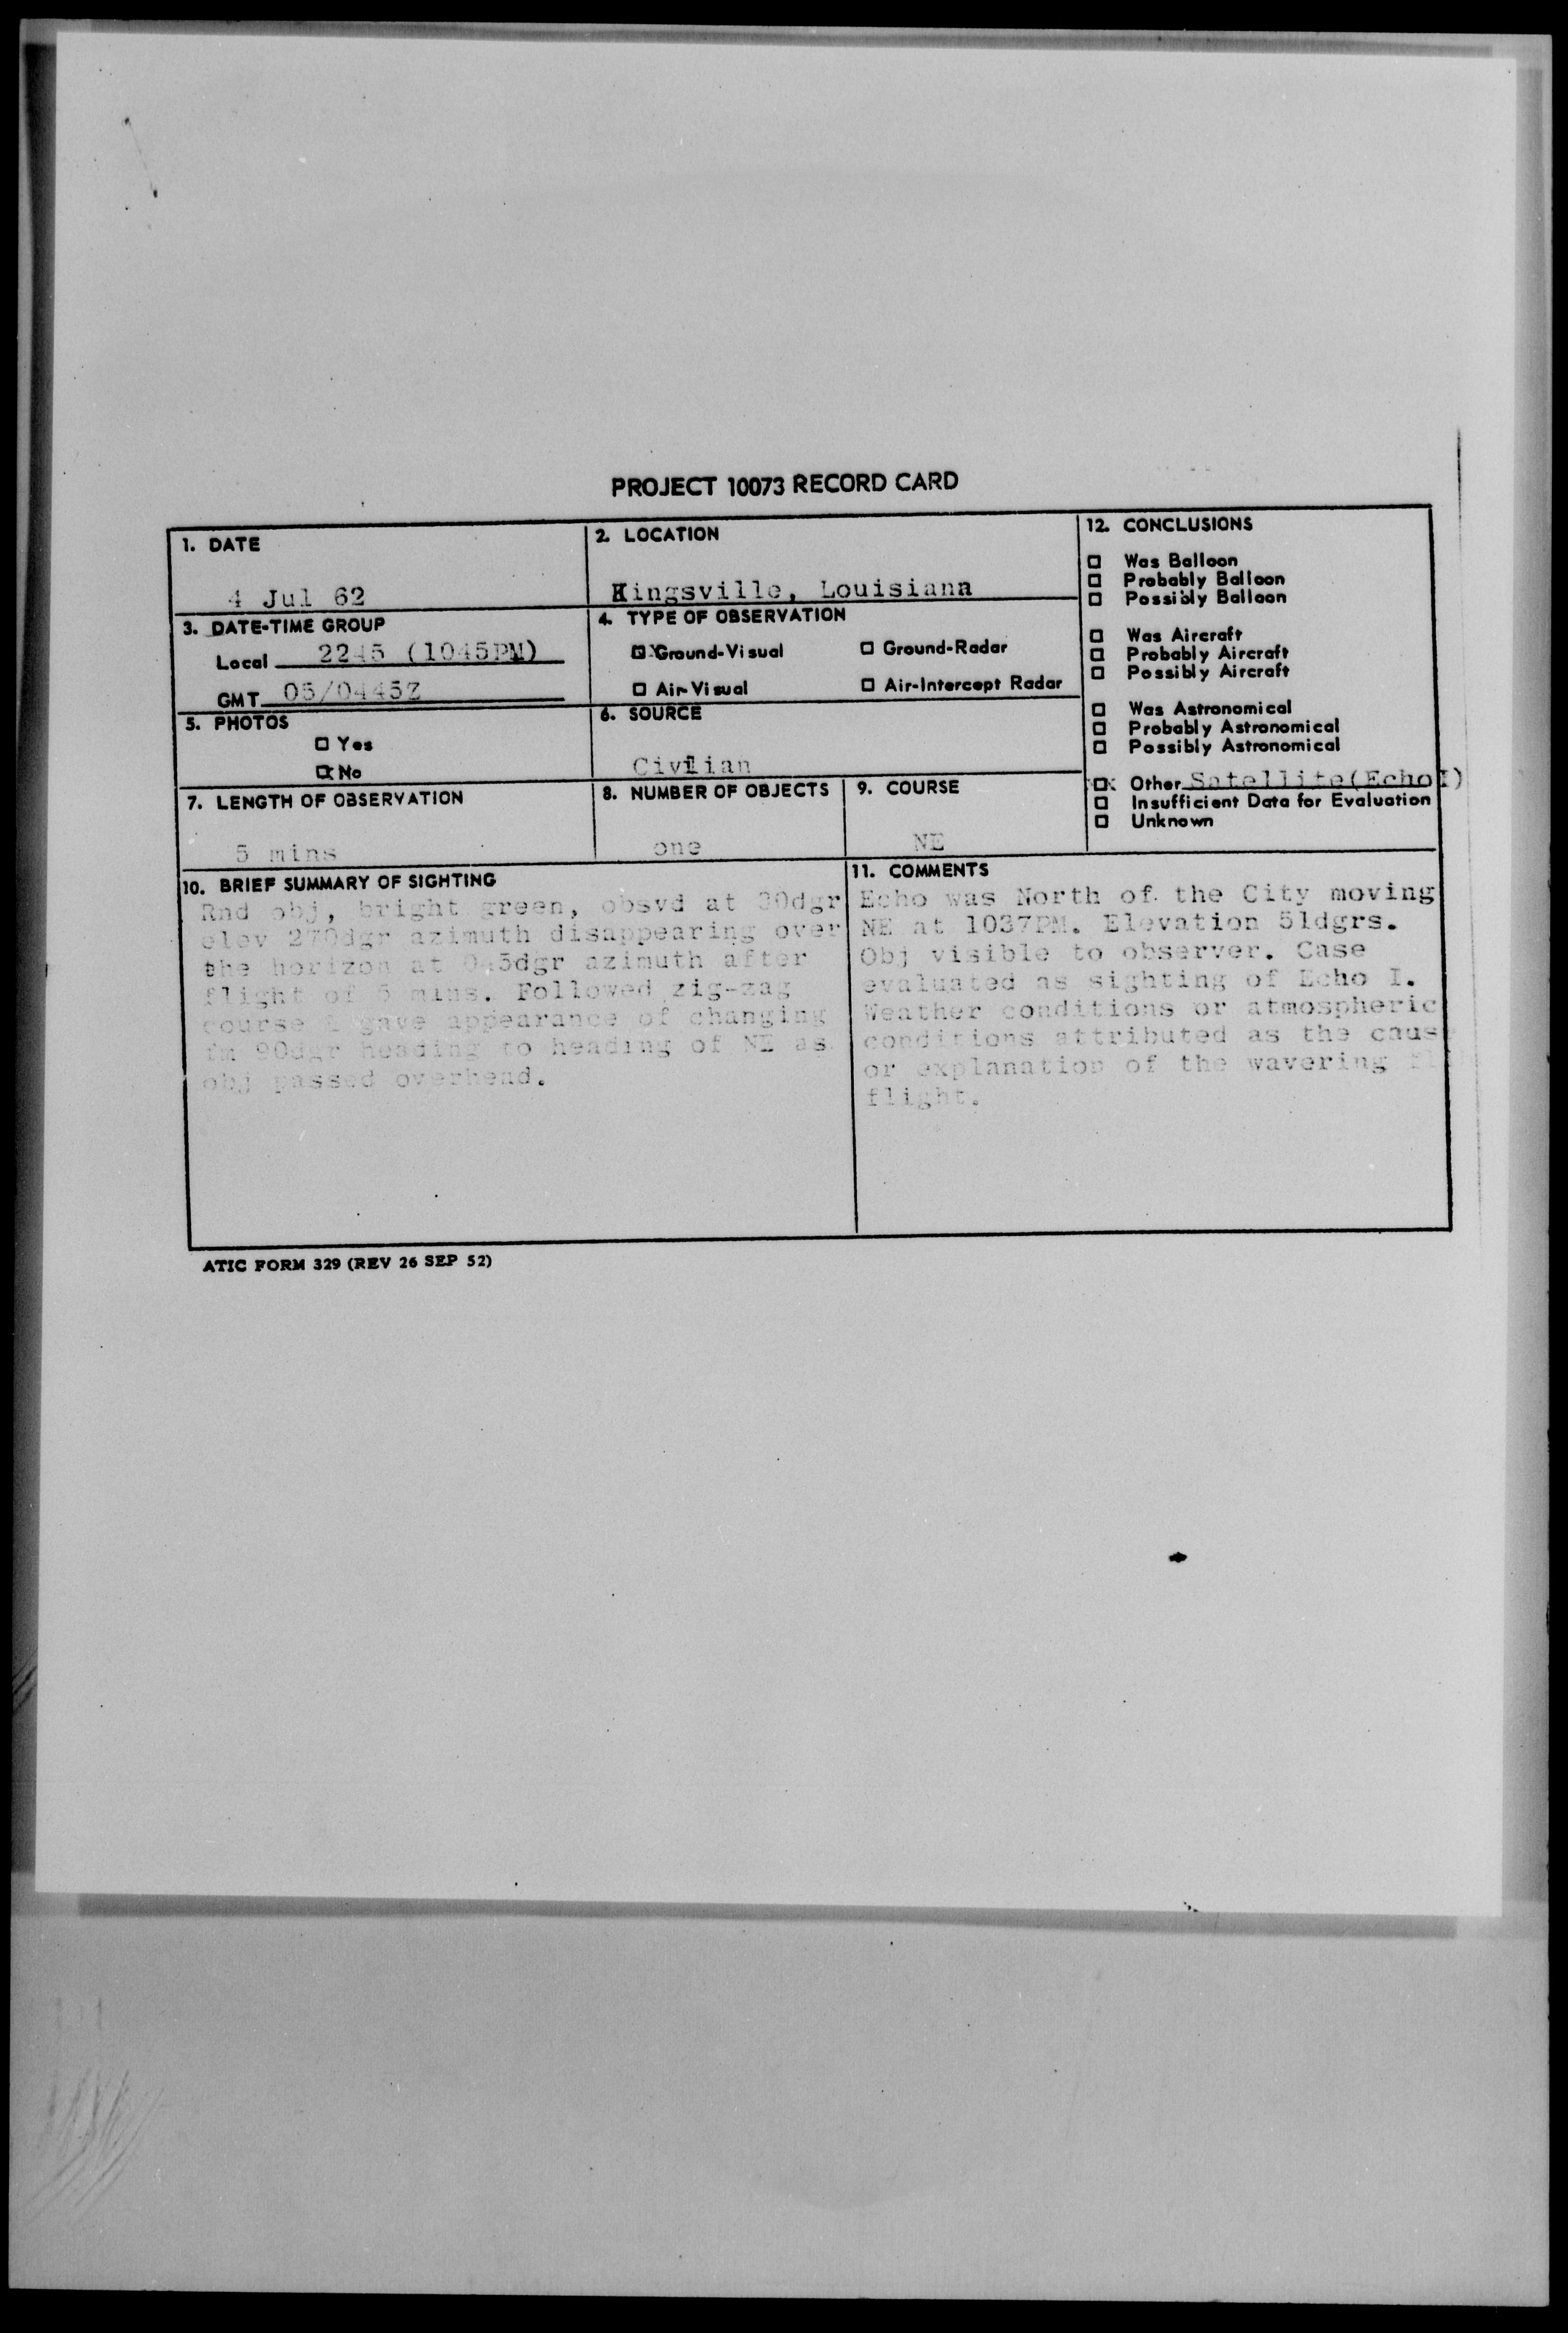 PROJECT 10073 RECORD CARD
1. DATE
4 Jul 62
2. LOCATION
Kingsville, Louisiana
3. DATE-TIME GROUP
Local 2245 (1045PM)
GMT 05/0445Z
4. TYPE OF OBSERVATION
☒ Ground-Visual ☐ Ground-Radar
☐ Air-Visual ☐ Air-Intercept Radar
5. PHOTOS
☐ Yes
☒ No
6. SOURCE
Civilian
7. LENGTH OF OBSERVATION
5 mins
8. NUMBER OF OBJECTS
one
9. COURSE
NE
10. BRIEF SUMMARY OF SIGHTING
Rnd obj, bright green, obsvd at 30dgr
elev 270dgr azimuth disappearing over
the horizon at 045dgr azimuth after
flight of 5 mins. Followed zig-zag
course gave appearance of changing
fm 90dgr heading to heading of NE as
obj passed overhead.
11. COMMENTS
Echo was North of the City moving
NE at 1037PM. Elevation 51dgrs.
Obj visible to observer. Case
evaluated as sighting of Echo I.
Weather conditions or atmospheric
conditions attributed as the caus
or explanation of the wavering fl
flight.
12. CONCLUSIONS
☐ Was Balloon
☐ Probably Balloon
☐ Possibly Balloon
☐ Was Aircraft
☐ Probably Aircraft
☐ Possibly Aircraft
☐ Was Astronomical
☐ Probably Astronomical
☐ Possibly Astronomical
☒ Other Satellite(Echo I)
☐ Insufficient Data for Evaluation
☐ Unknown
ATIC FORM 329 (REV 26 SEP 52)